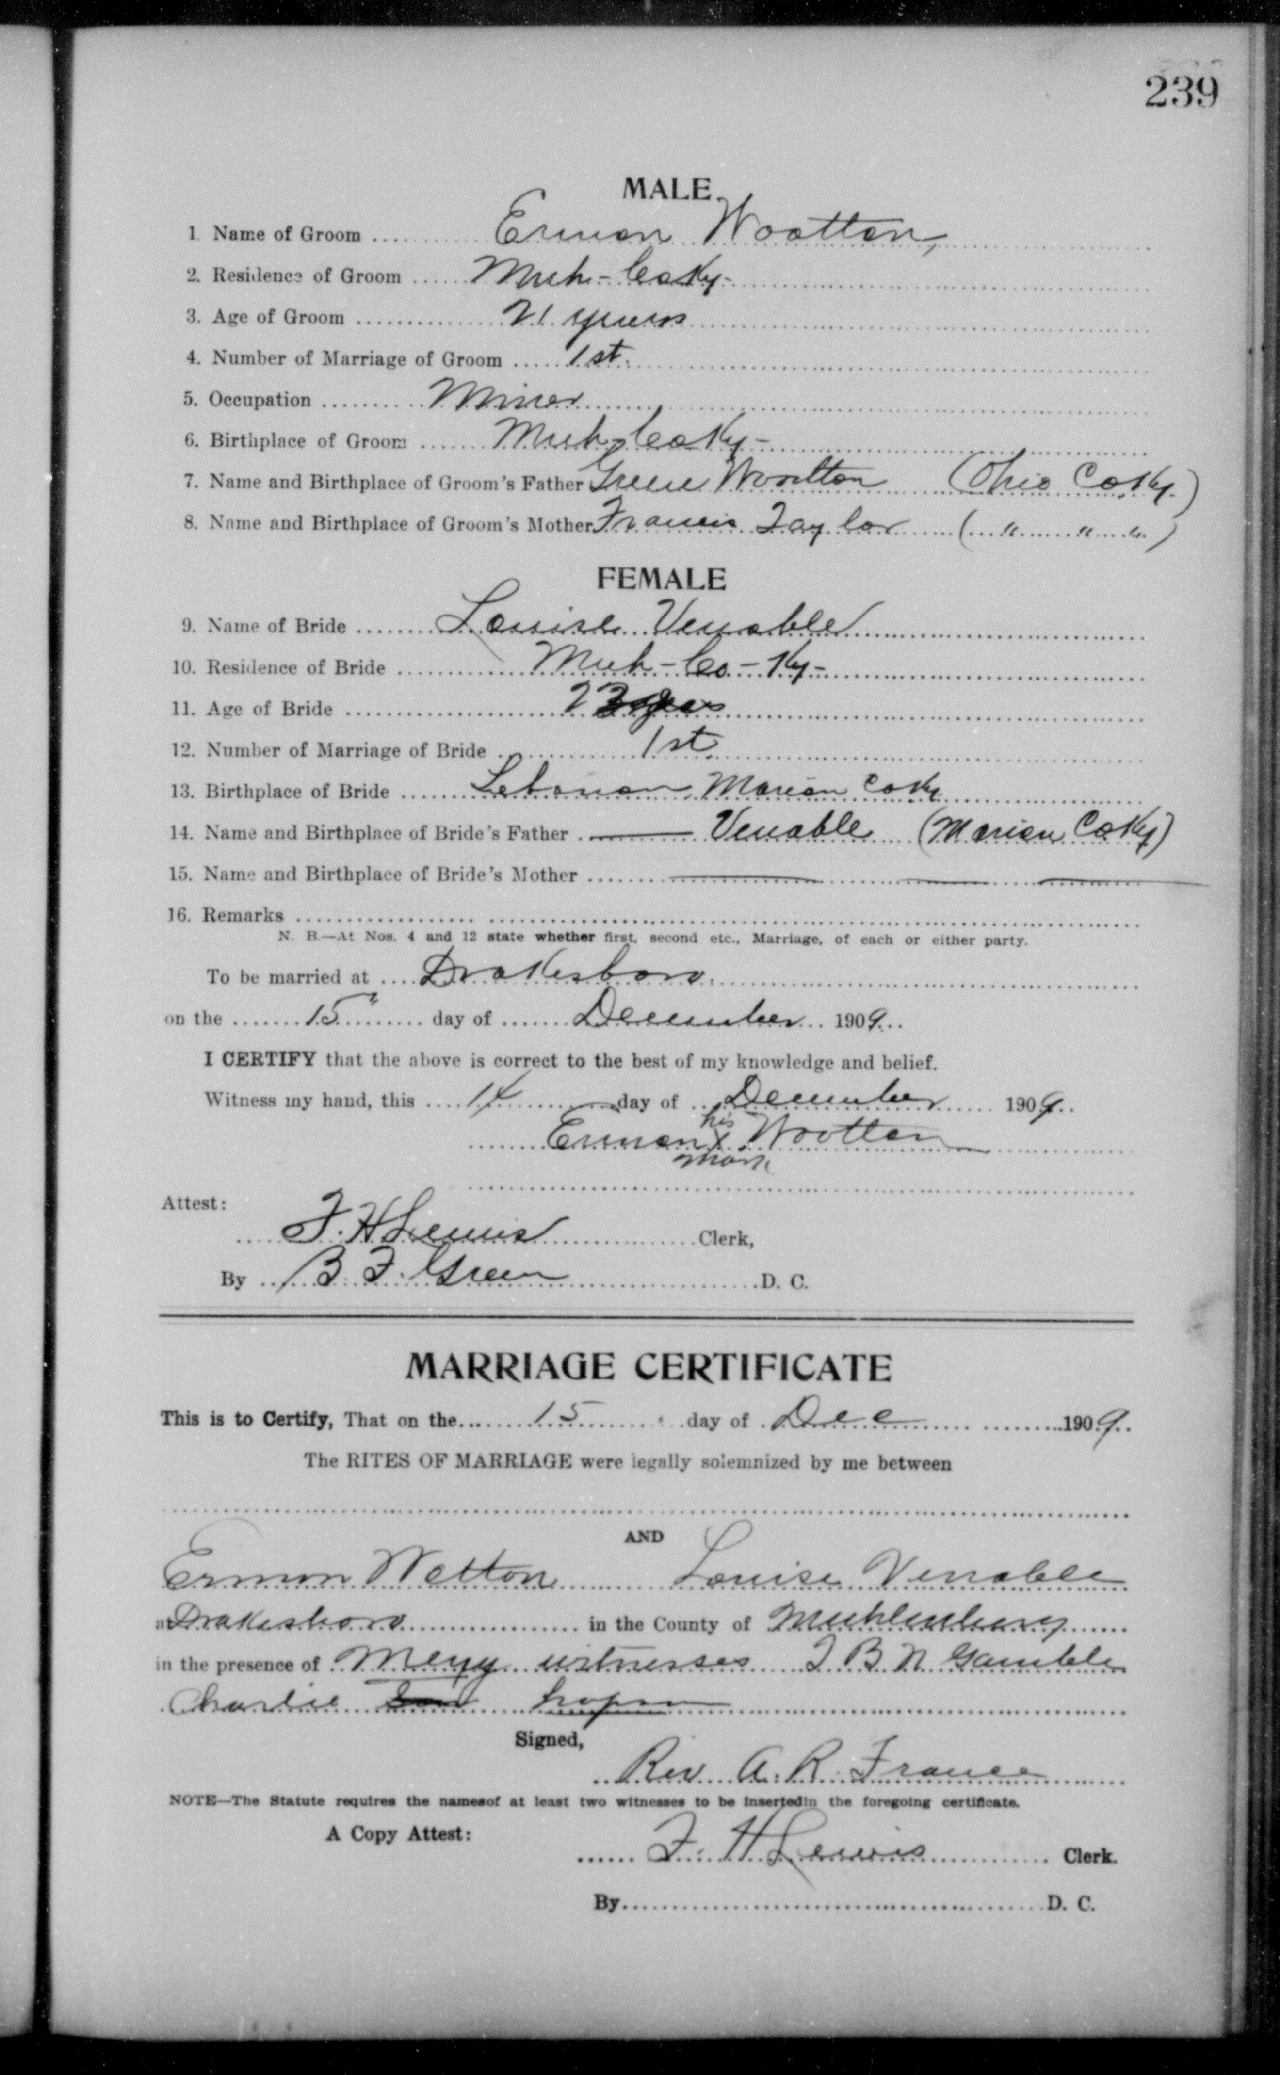 239
MALE
1. Name of Groom Ermon Wootton,
2. Residence of Groom Muh-Co Ky-
3. Age of Groom 21 years
4. Number of Marriage of Groom 1st.
5. Occupation Miner
6. Birthplace of Groom Muh-Co Ky-
7. Name and Birthplace of Groom's Father Green Wootton (Ohio Co Ky.)
8. Name and Birthplace of Groom's Mother Francis Taylor ( " " " )
FEMALE
9. Name of Bride Louise Venable
10. Residence of Bride Muh-Co-Ky-
11. Age of Bride
12. Number of Marriage of Bride 1st.
13. Birthplace of Bride Lebanon Marion Co Ky
14. Name and Birthplace of Bride's Father — Venable (Marion Co Ky)
15. Name and Birthplace of Bride's Mother — — —
16. Remarks
N. B.—At Nos. 4 and 12 state whether first, second etc., Marriage, of each or either party.
To be married at Drakesboro
on the 15" day of December 1909
I CERTIFY that the above is correct to the best of my knowledge and belief.
Witness my hand, this 14 day of December 1909
his
Ermon X Wootton
mark
Attest:
F. H Lewis Clerk,
By B. F. Green D. C.
MARRIAGE CERTIFICATE
This is to Certify, That on the 15 day of Dec 1909
The RITES OF MARRIAGE were legally solemnized by me between
AND
Ermon Wetton Louise Venable
at Drakesboro in the County of Muhlenburg
in the presence of witnesses B N Gamble
Charlie
Signed,
Rev A. R. France
NOTE—The Statute requires the namesof at least two witnesses to be insertedin the foregoing certificate.
A Copy Attest:
F. H Lewis Clerk.
By D. C.